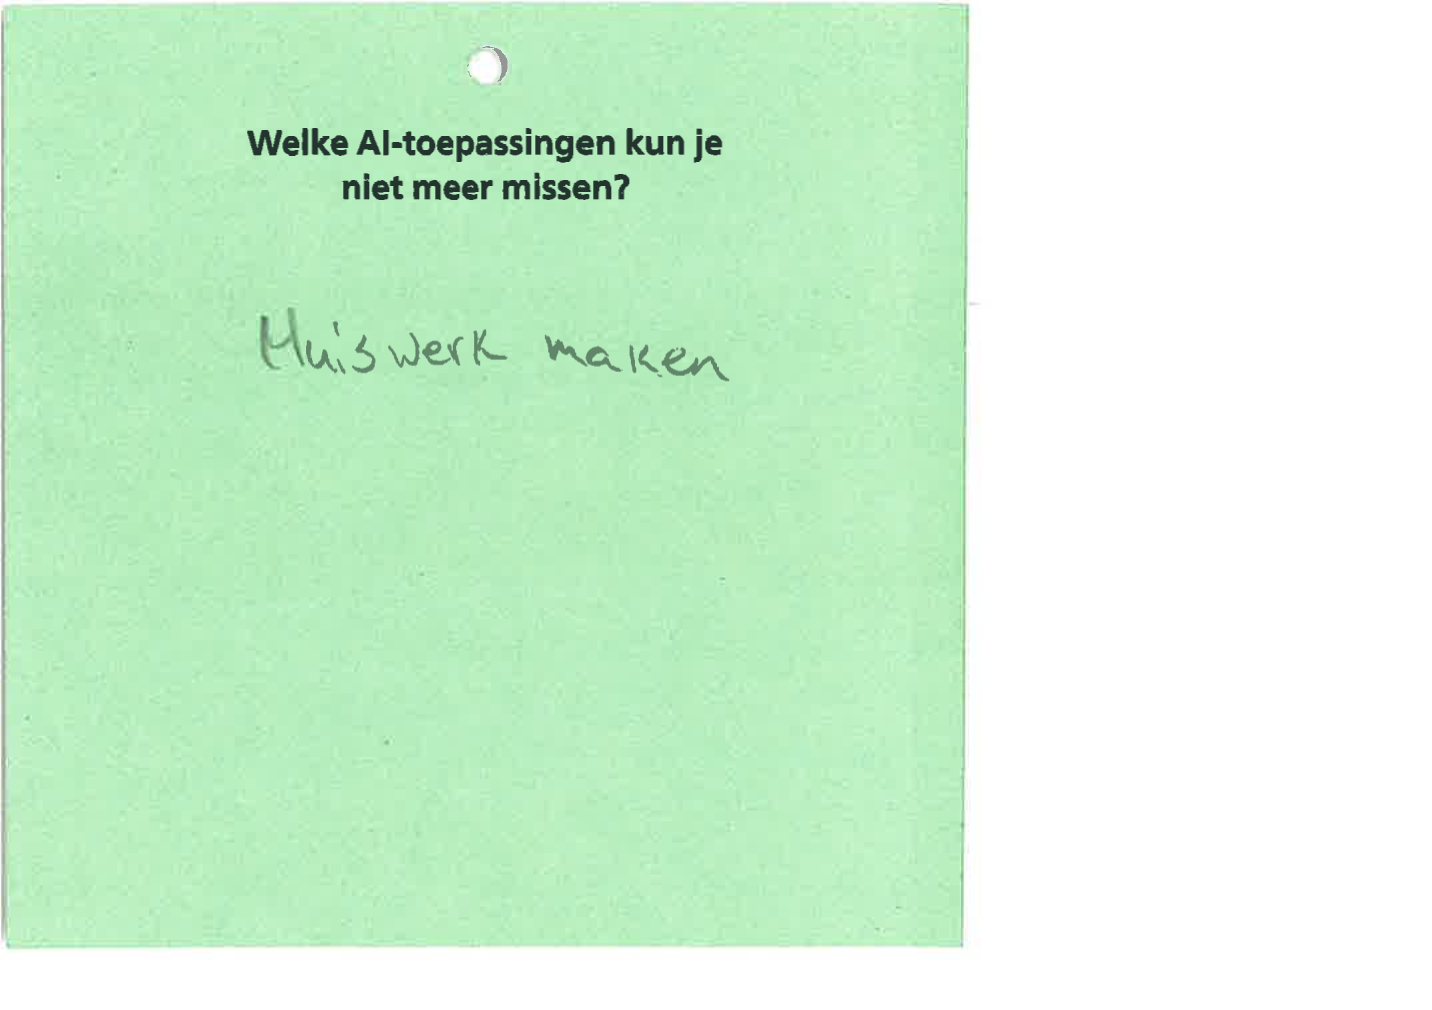 Welke AI-toepassingen kun je
niet meer missen?
Huiswerk maken